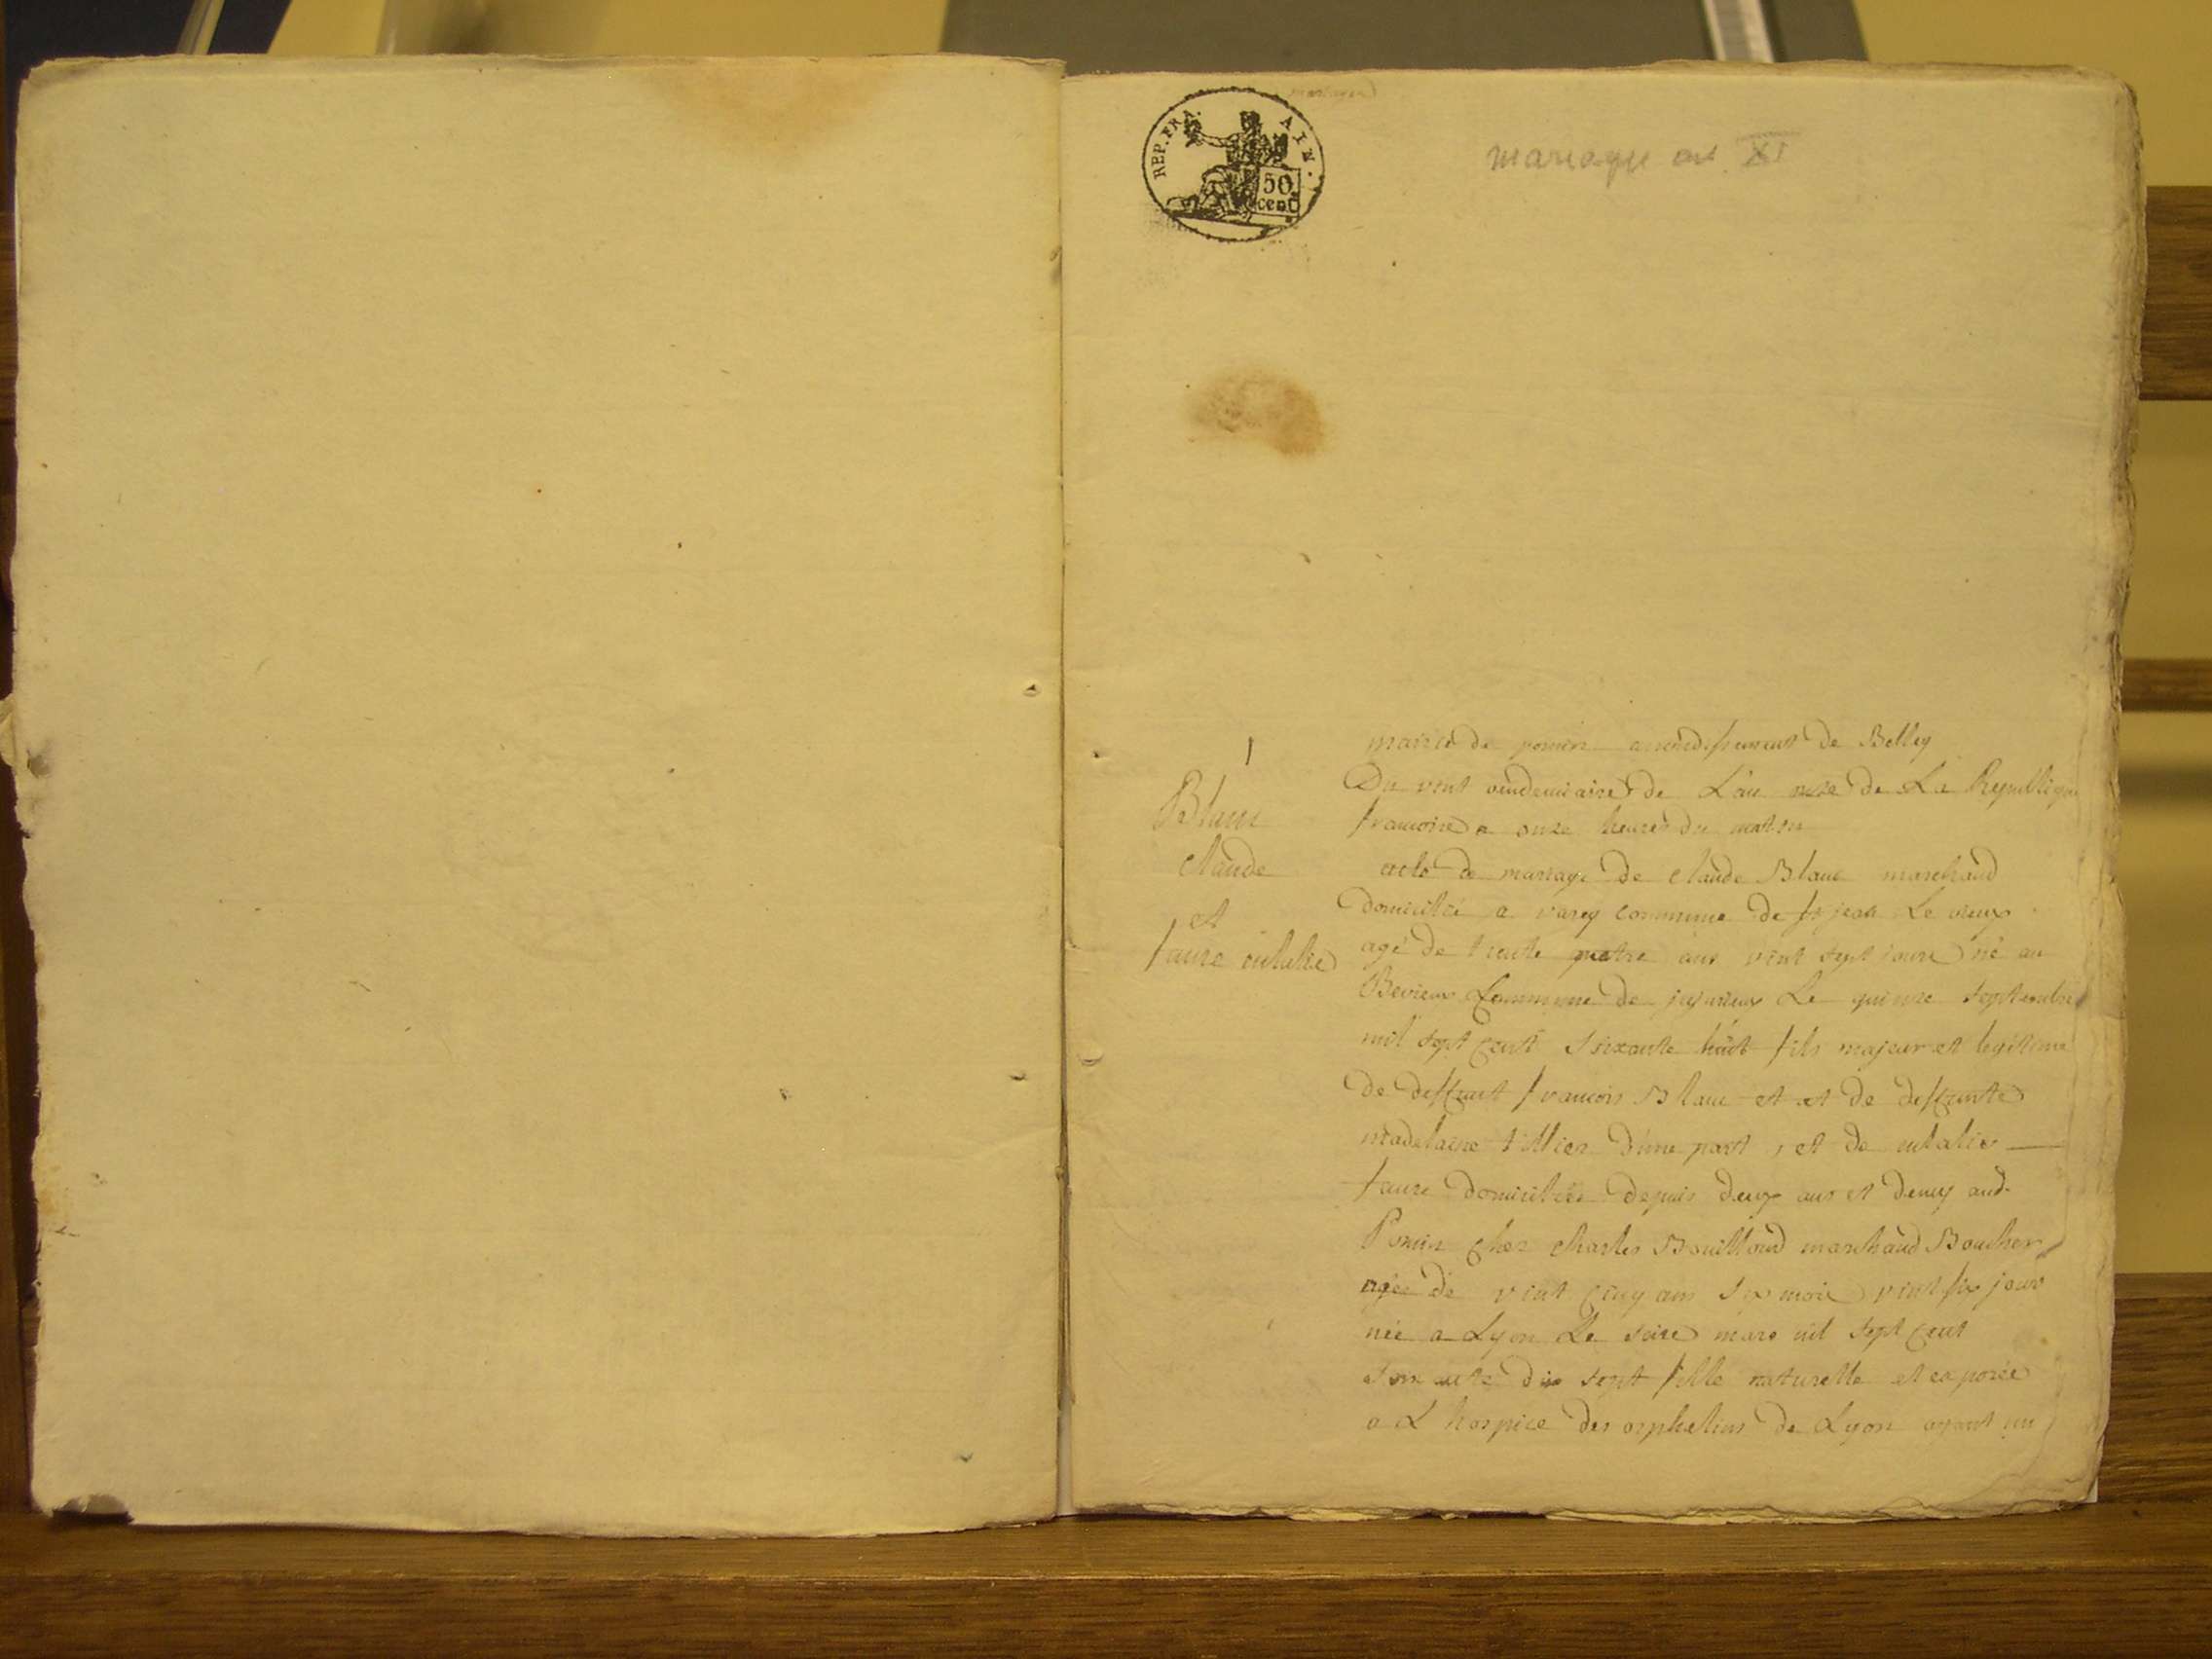 REP. FRA. AIN.
50
cent
mariage an XI
1
Blanc
Claude
et
faure eulalie
mairie de poncin arrondissement de Belley
Du vint vendemiaire de L'an onze de La Republique
francoise a onze heures du matin
acte de mariage de claude Blanc marchand
Domicilié a varey commune de st jean Le vieux
agé de trente quatre ans vint sept jours né au
Bevieux Commune de jujurieux Le quinze septembre
mil sept cent soixante huit fils majeur et legitime
de deffunt francois Blanc et et de deffunte
madelaine tillier d'une part, et de eulalie
faure domiciliée depuis deux ans et demy aud.
Poncin chez charles Bouilloud marchand Boucher
agée de vint cinq ans six mois vint six jours
née a Lyon Le seize mars mil sept cent
soixante dix sept fille naturelle et exposée
a L'hospice des orphelins de Lyon ayant un